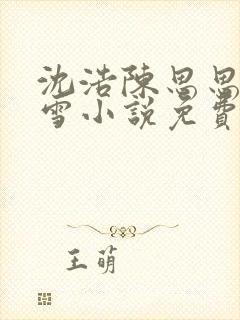 沈浩陳思思
雪小說免費
王萌